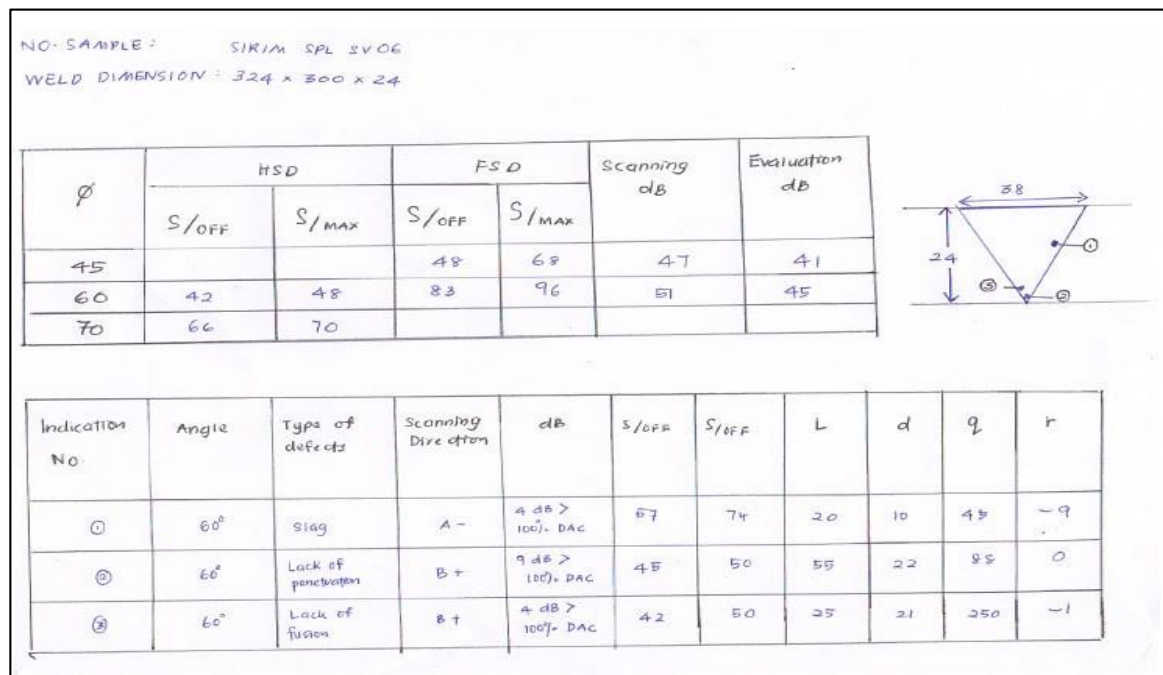 NO. SAMPLE : SIRIM SPL SV06
WELD DIMENSION : 324 x 300 x 24
Ø HSD FSD Scanning dB Evaluation dB
S/OFF S/MAX S/OFF S/MAX
45 48 68 47 41
60 42 48 83 96 51 45
70 66 70
38
24
①
③ ②
Indication No. Angle Type of defects Scanning Direction dB S/OFF S/OFF L d q r
① 60° Slag A - 4 dB > 100% DAC 57 74 20 10 -9
② 60° Lack of penetration B + 9 dB > 100% DAC 45 50 55 22 0
③ 60° Lack of fusion B + 4 dB > 100% DAC 42 50 25 21 250 -1